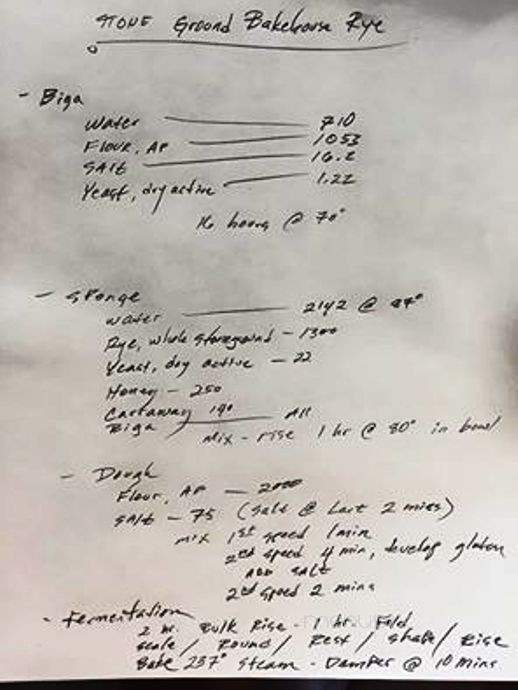 STONE Ground Bakehouse Rye
- Biga
Water 710
Flour, AP 1053
SAlt 16.2
Yeast, dry active 1.22
16 hours @ 70°
- Sponge
water 2142 @ °
Rye, whole stoneground - 1300
Yeast, dry active - 22
Honey - 250
Carraway 190
Biga All
Mix - rise 1 hr @ 80° in bowl
- Dough
Flour, AP - 2000
SAlt - 75 (Salt @ Last 2 mins)
mix 1st speed 1 min
2nd speed 4 min, develop gluten
ADD SALT
2nd speed 2 mins
- Fermentation
2 hr. Bulk Rise - 1 hr Fold
Scale / Round / Rest / Shape / Rise
Bake 237° Steam - Damper @ 10 mins